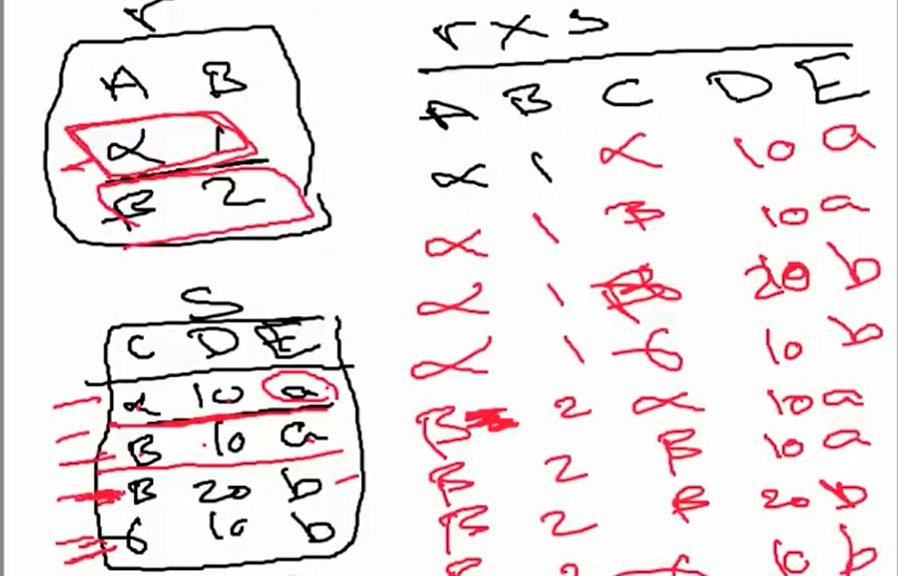 r
A B
α 1
β 2
S
C D E
α 10 a
β 10 a
β 20 b
6 10 b
r x s
A B C D E
α 1 α 10 a
α 1 β 10 a
α 1 β 20 b
α 1 6 10 b
β 2 α 10 a
β 2 β 10 a
β 2 β 20 b
β 2 6 10 b